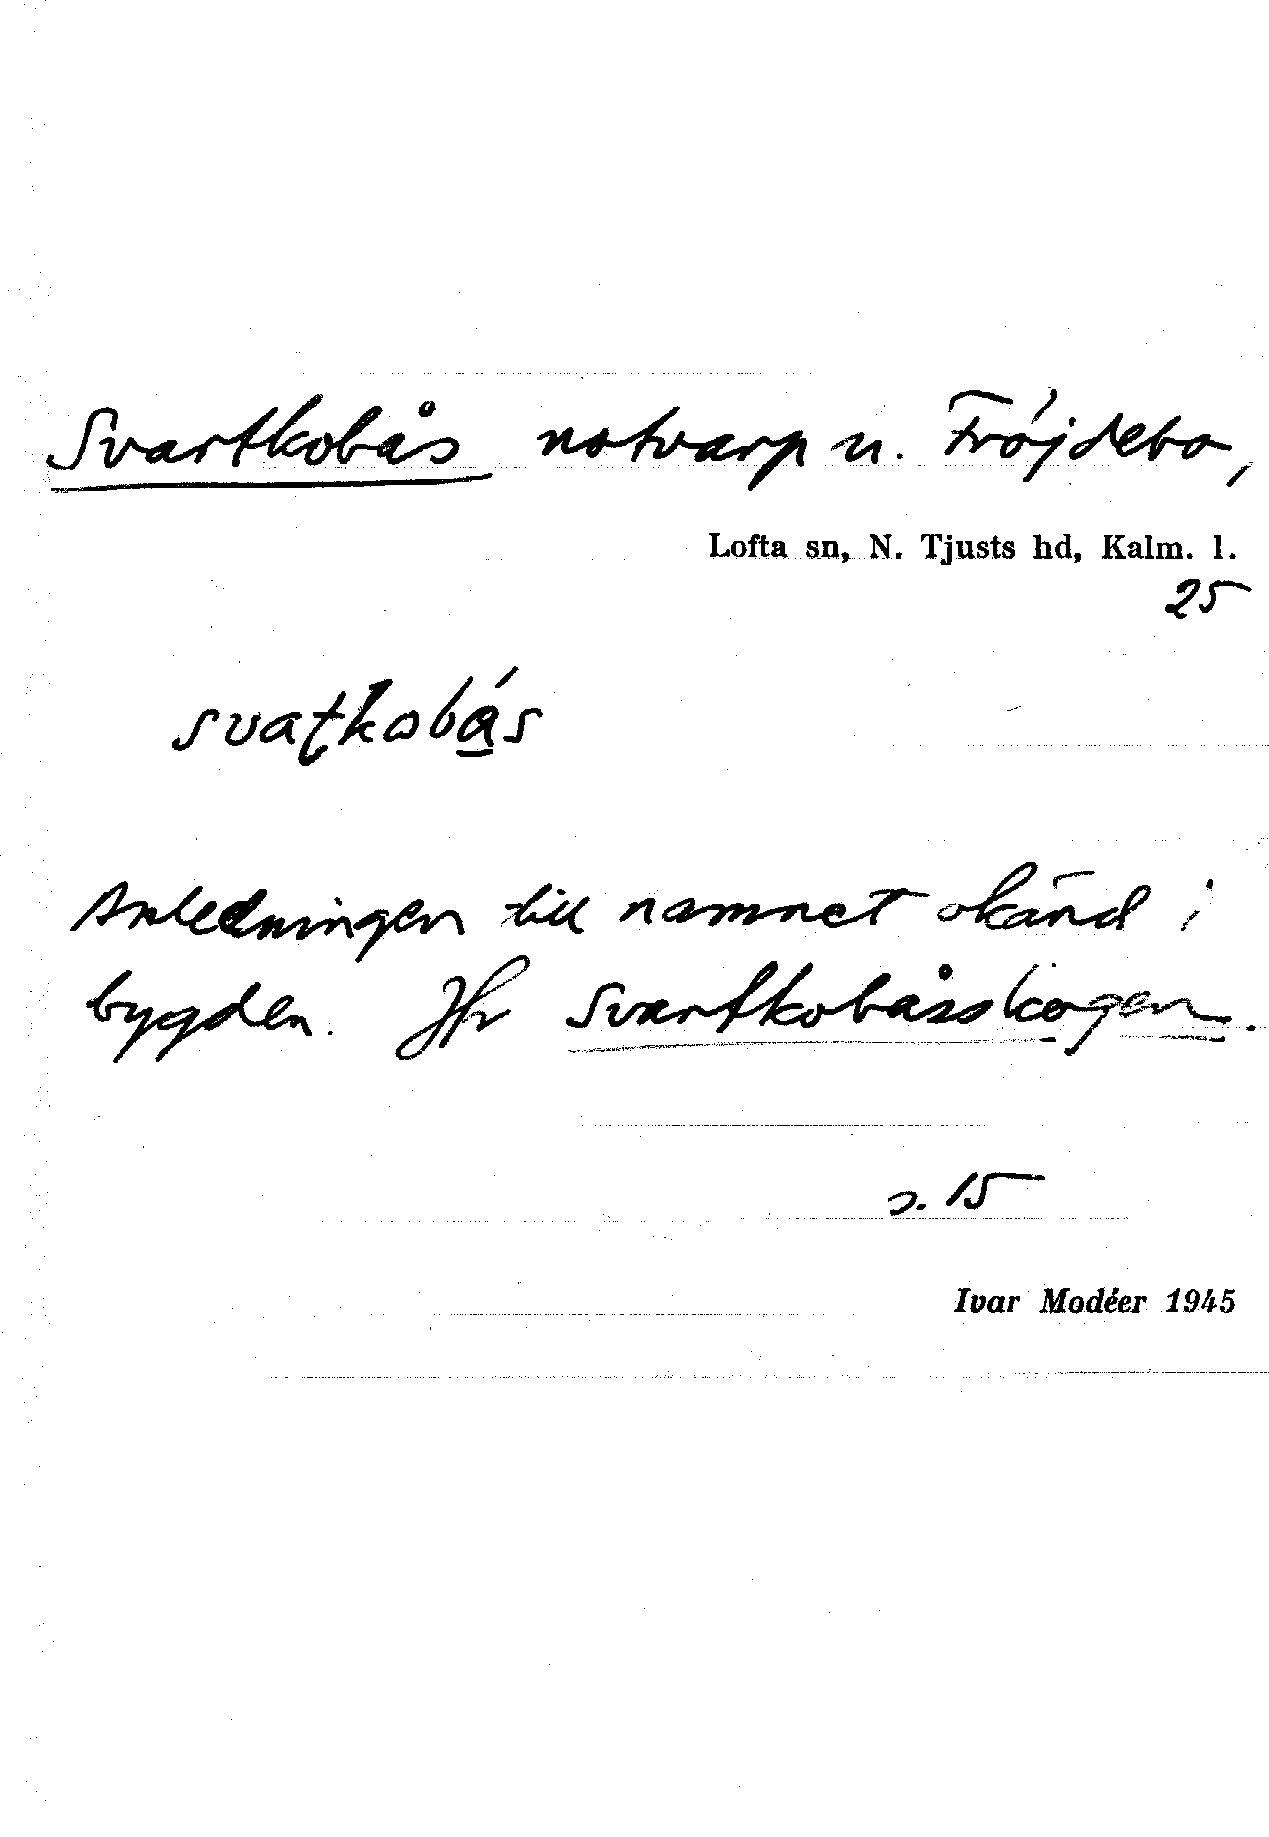 Svartkobås notvarp u. Fröjdebo,
Lofta sn, N. Tjusts hd, Kalm. l.
25
svaƫkobás
Anledningen till namnet okänd i
bygden. Jfr Svartkobåsskogen.
s. 15
Ivar Modéer 1945